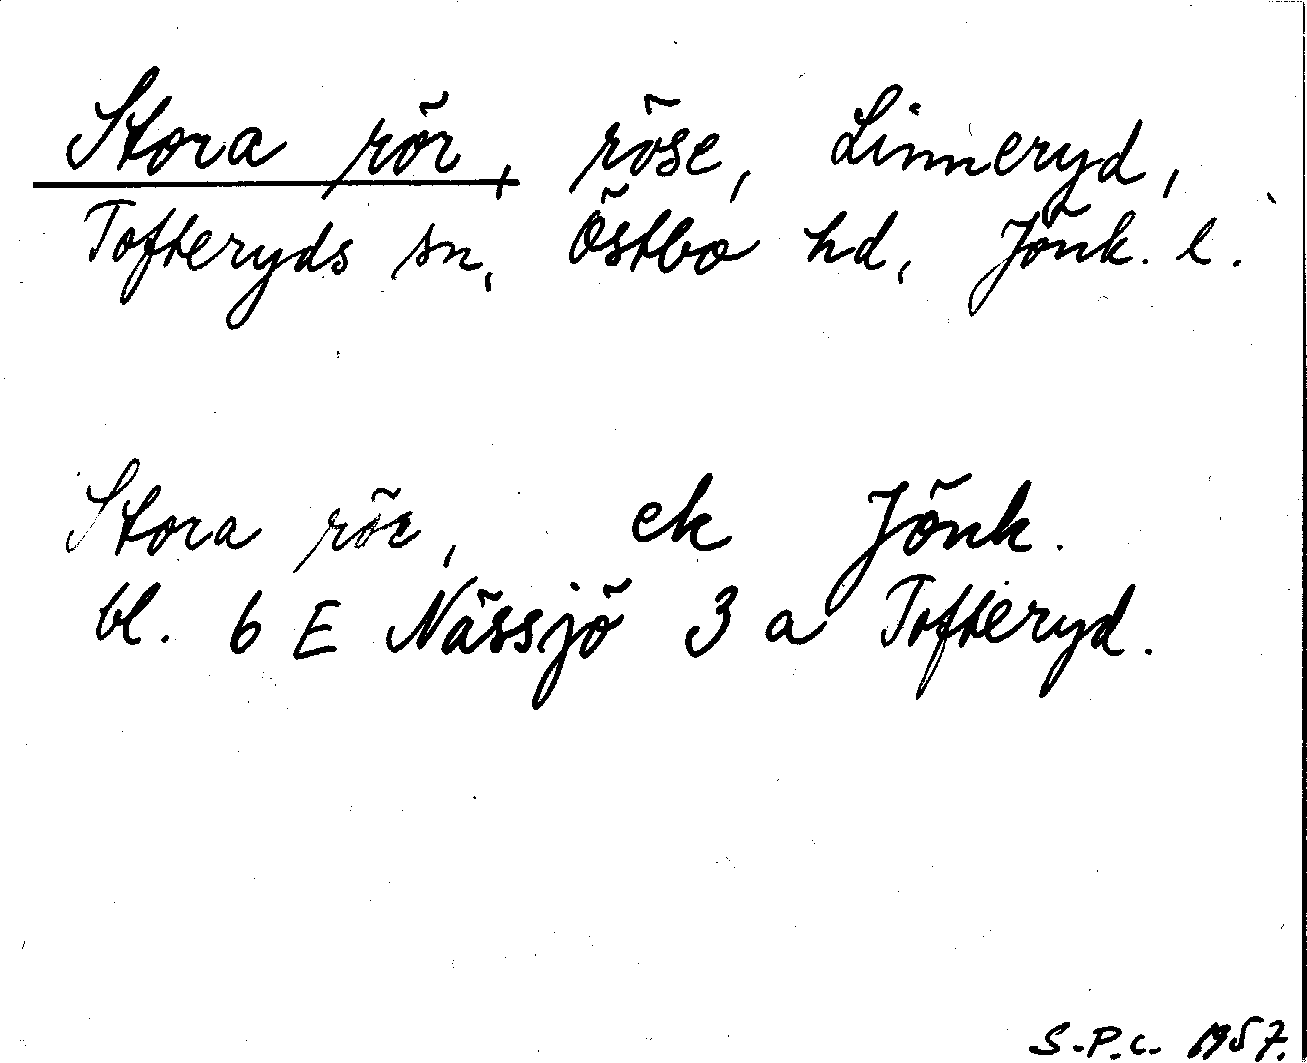 Stora rör, röse, Linneryd,
Tofteryds sn, Östbo hd, Jönk. l.
Stora rör, ek Jönk.
bl. 6 E Nässjö 3 a Tofteryd.
S.P.C. 1957.